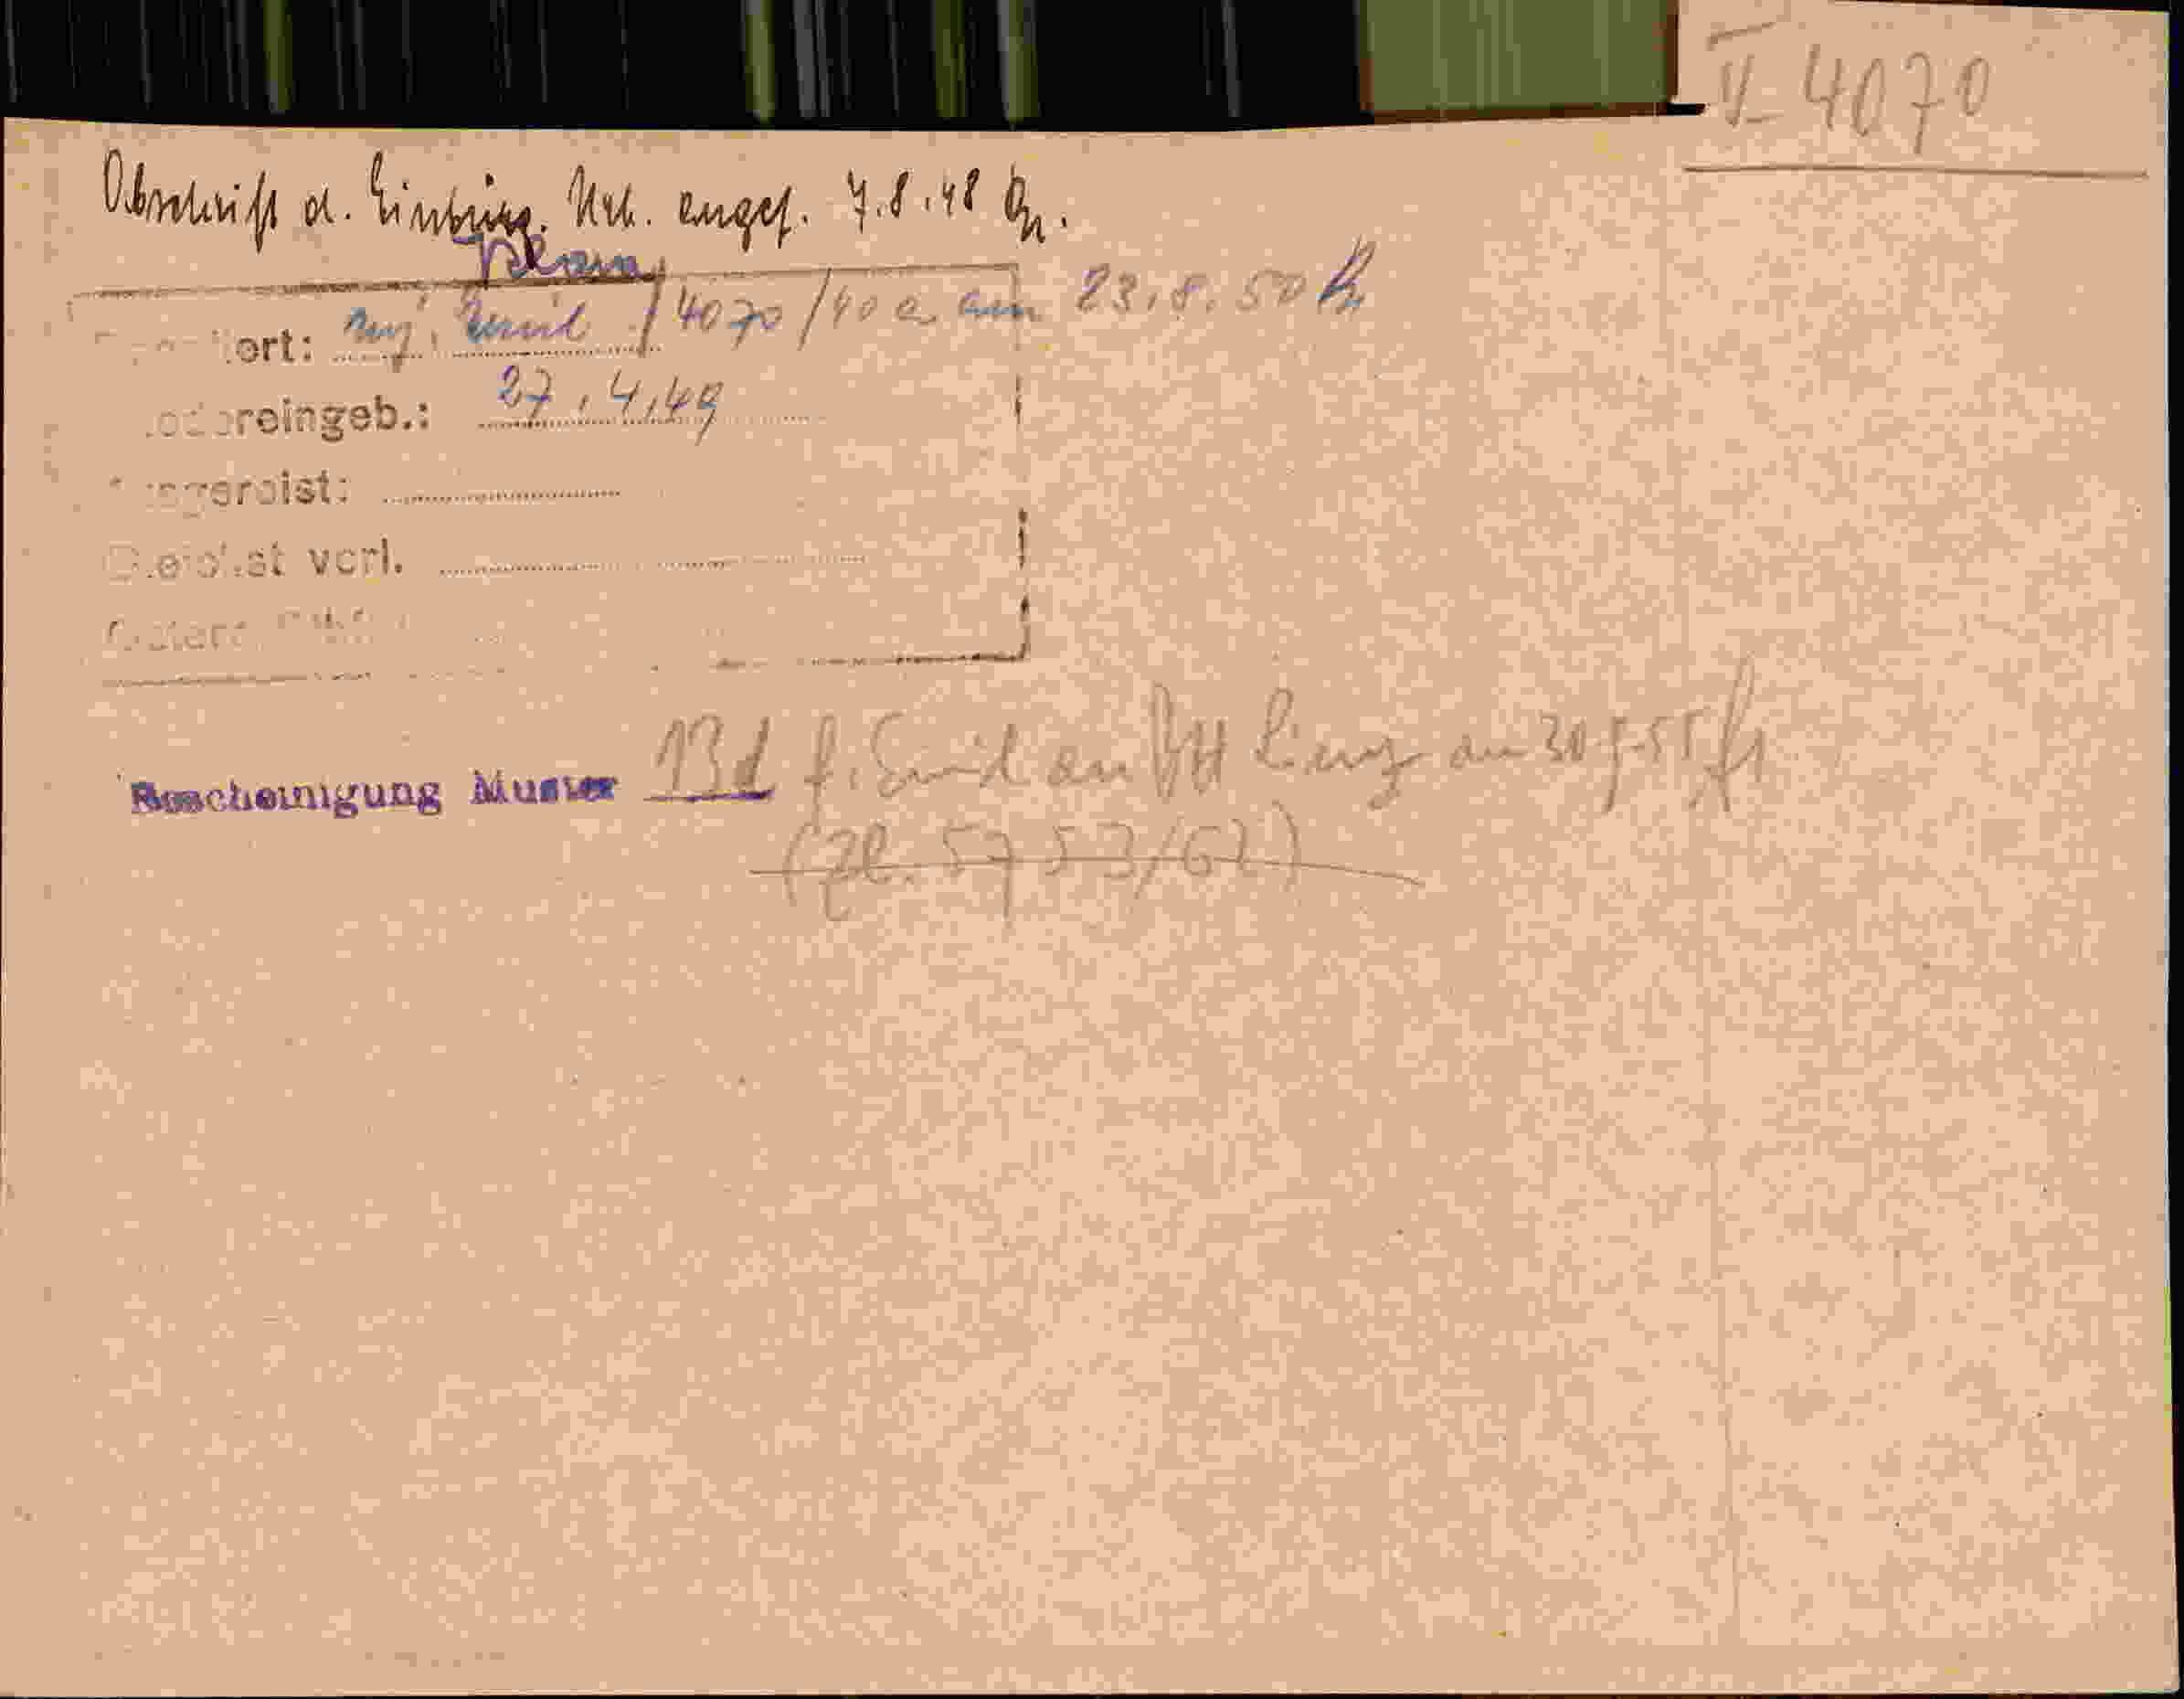 V 4070
Abschrift d. Einbürg. Urk. angef. 7.8.48
ert: Emil 4070/40 a am 23.8.50
dereingeb.: 27.4.49
gereist:
verl.
Bescheinigung Muster 13d f. Emil an BH Lienz am 30.5.55
(Zl. 5753/62)